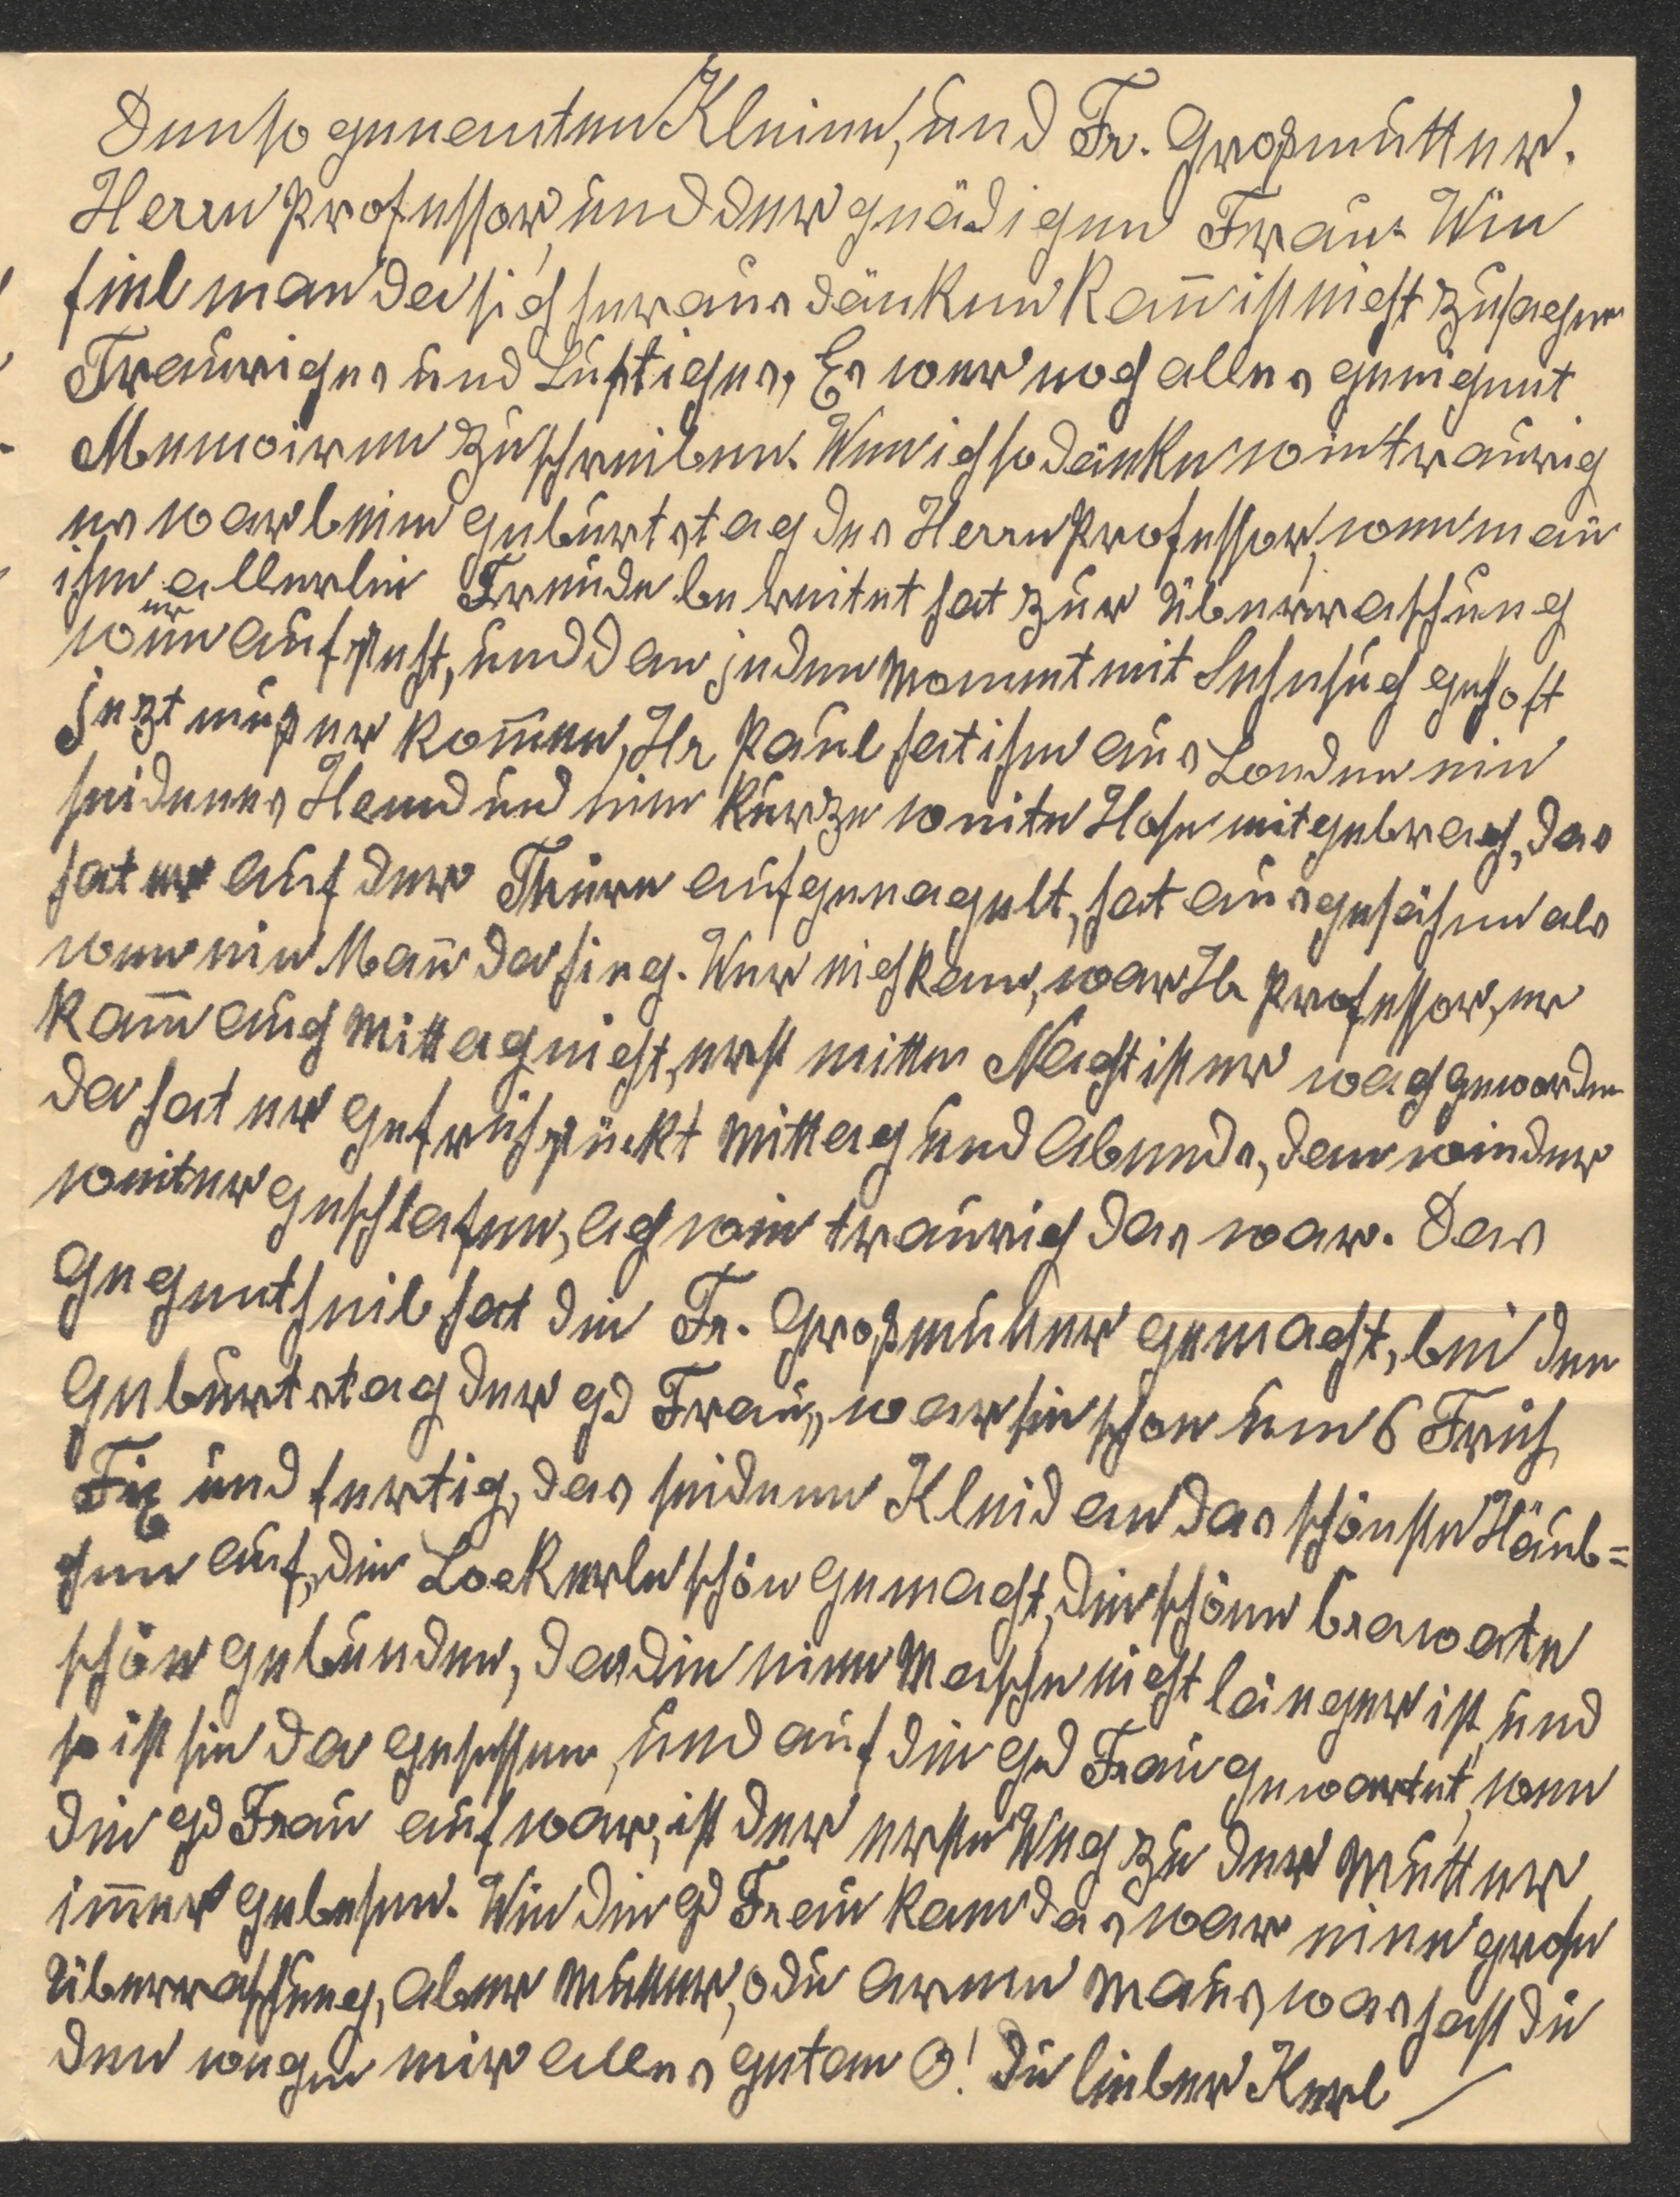 Den so genanten Kleinen, und Fr. Großmutter.
Herrn Professor, und der gnädigen Frau. Wie
fiel man da sich heraus dänken kan̄ ist nicht zu sagen
Trauriges und Lustiges, Es wer noch alles geeigent
Memoiren zu schreiben. Wen ich so dänke wie traurig
es war beim Geburtstag des Herrn Professor, wen man
ihm allerlei Freude bereitet hat zur Überraschung
wen er aufsteht, und dan jeden Moment mit Sehnsuch gehoft
jezt muß er kom̄en, Hr Paul hat ihm aus London ein
seidenes Hemd und eine kurze weite Hose mitgebrach, das
hat er auf der Thüre aufgenagelt, hat ausgesähen als
wen ein Man̄ da hing. Wer nich kam, war Hr Professor, er
kam̄ auch Mittag nicht, erst mitten Nacht ist er wach geworden
da hat er gefrühstückt Mittag und Abends, dan wieder
weiter geschlafen, ach wie traurig das war. Das
Gegentheil hat die Fr. Großmutter gemacht, bei den
Geburtstag der gd Frau,, war sie schon um 6 Früh
Fix und fertig, das seidene Kleid an das schönste Häub=
chen auf, die Lockerle schön gemacht, die schöne Crawate
schön gebunden, das die eine Masche nicht länger ist, und
so ist sie da gesessen, und auf die gd Frau gewartet, wen
die gd Frau auf war, ist der erste Weg zu der Mutter
im̄er gebesen. Wie die gd Frau kam das war eine grose
Überraschung, aber Mutter, o du arme Maus was hast du
den wegen mir alles getan O! du lieber Kerl